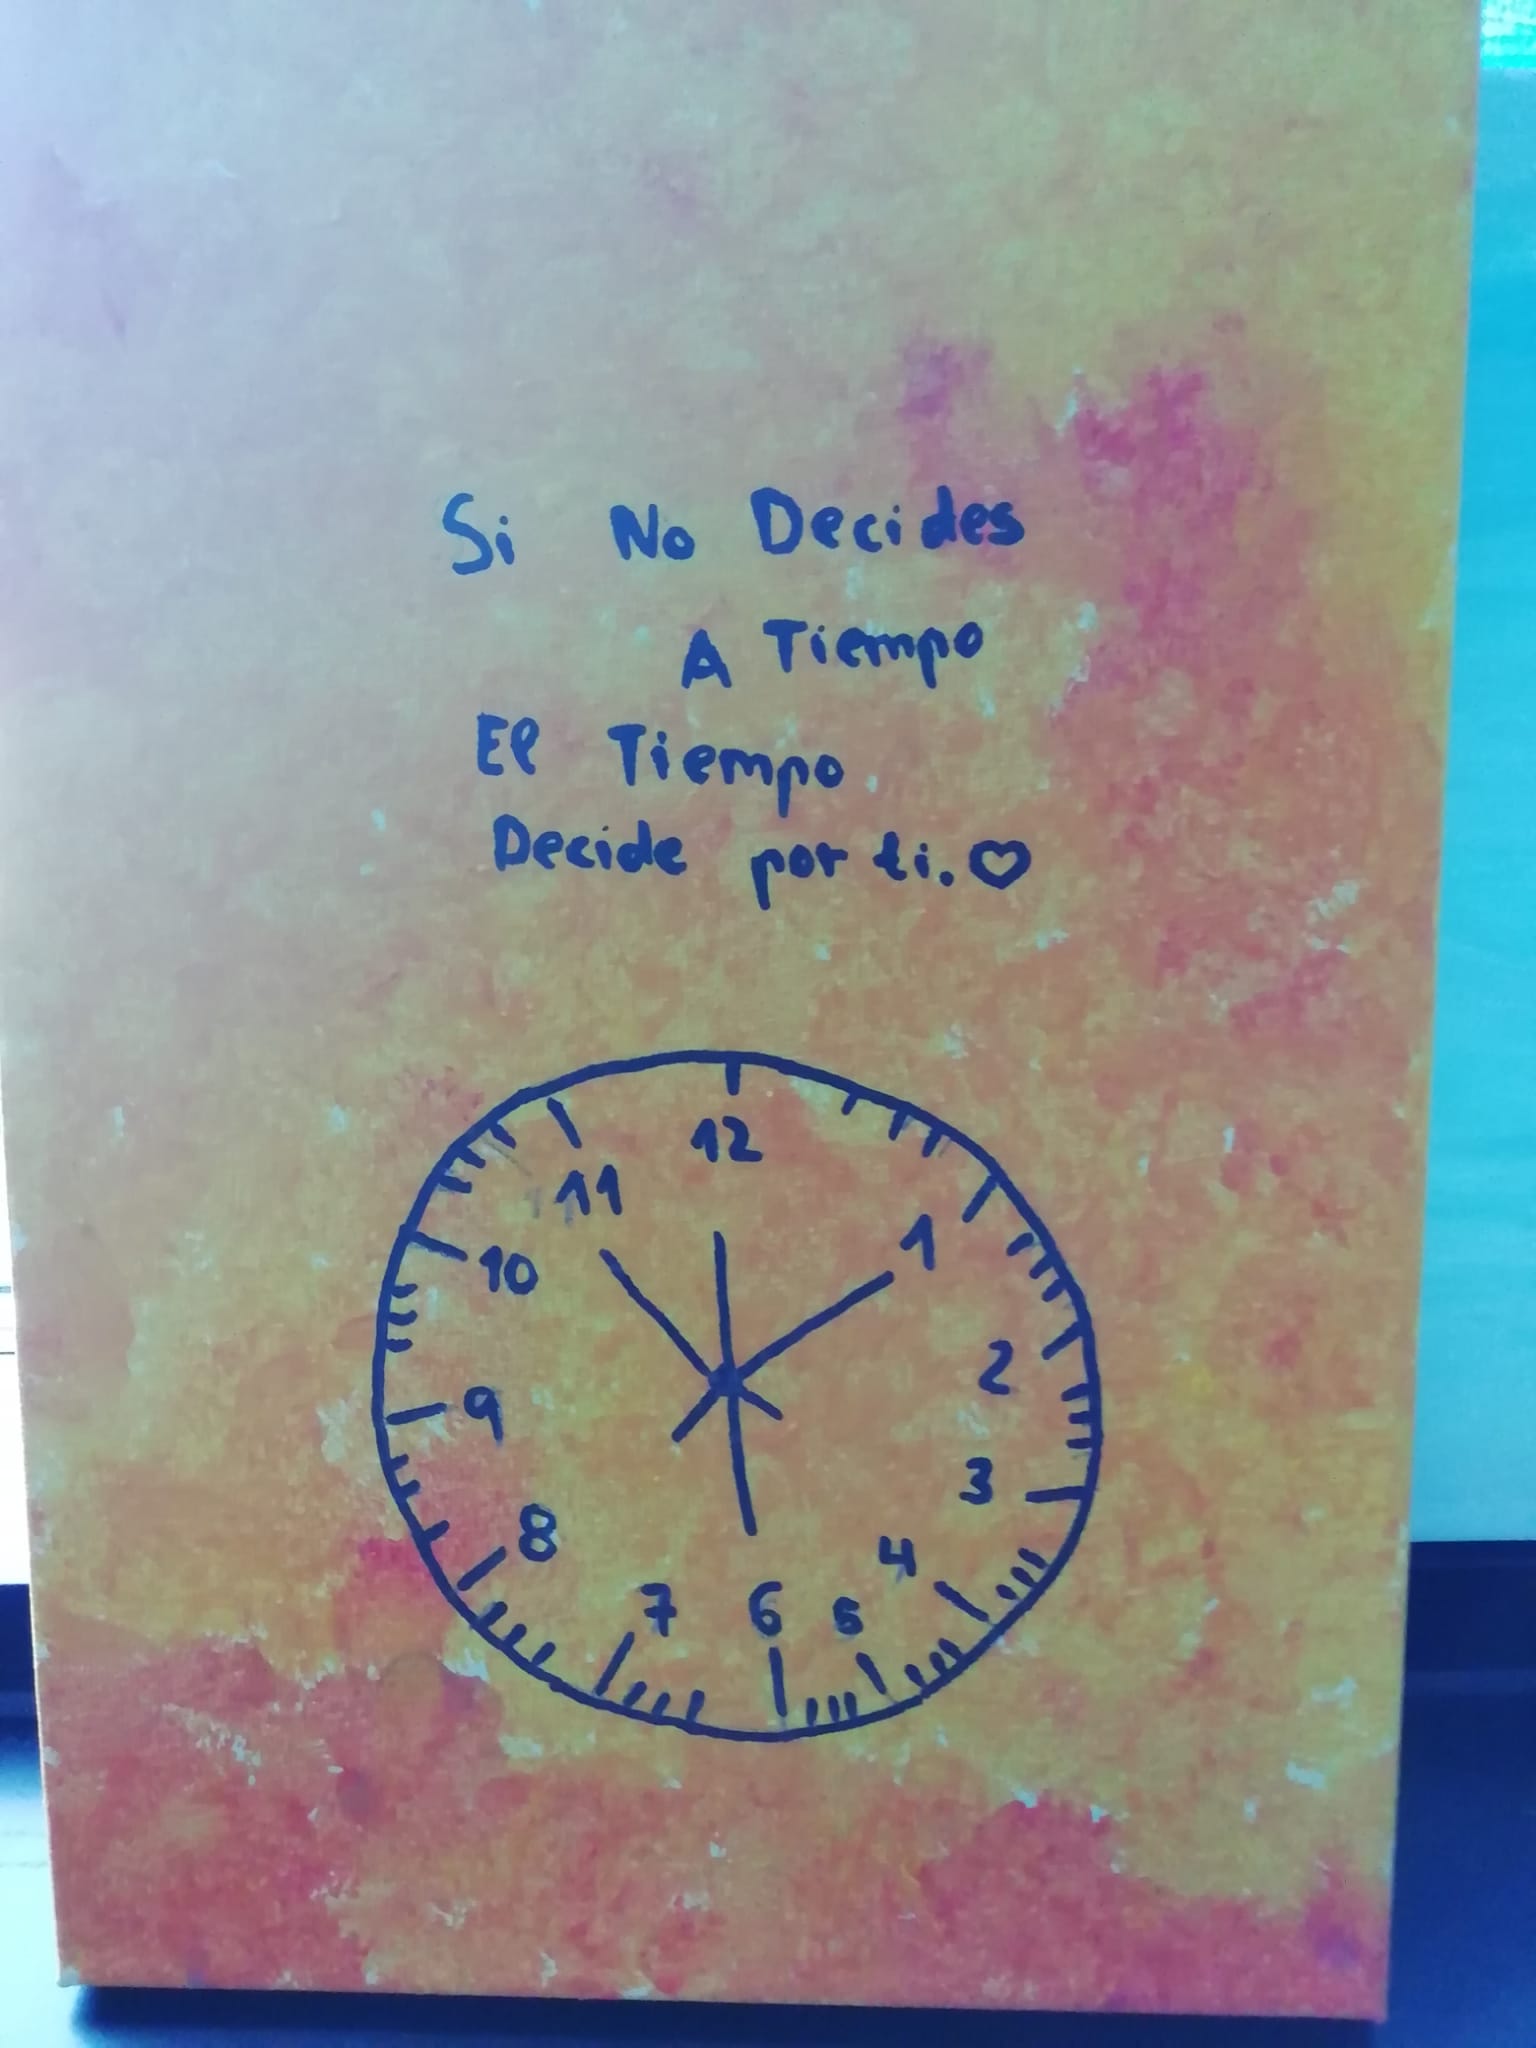 Si No Decides
A Tiempo
El Tiempo
Decide por ti.♡
12
11
1
10
2
9
3
8
4
7
6
5